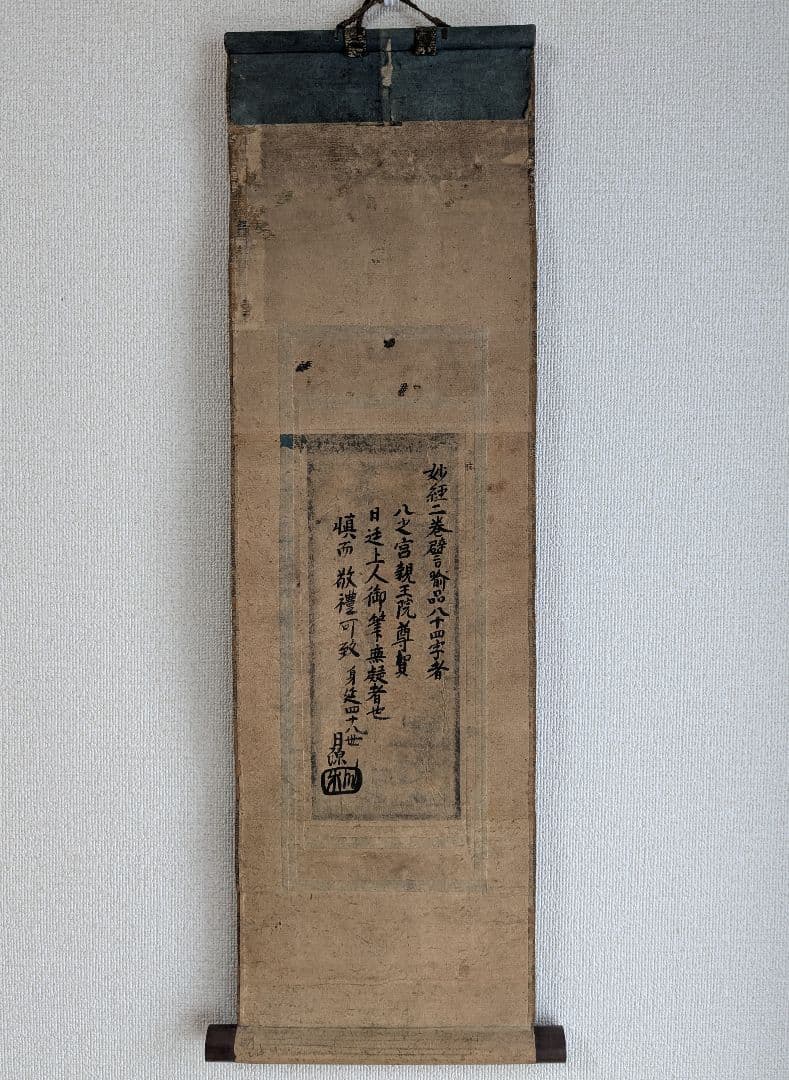 妙經二巻譬喻品八十四字者
八之宮親王院尊賀
日廷上人御筆無疑者也
慎而敬禮可致
身延四十八世
日